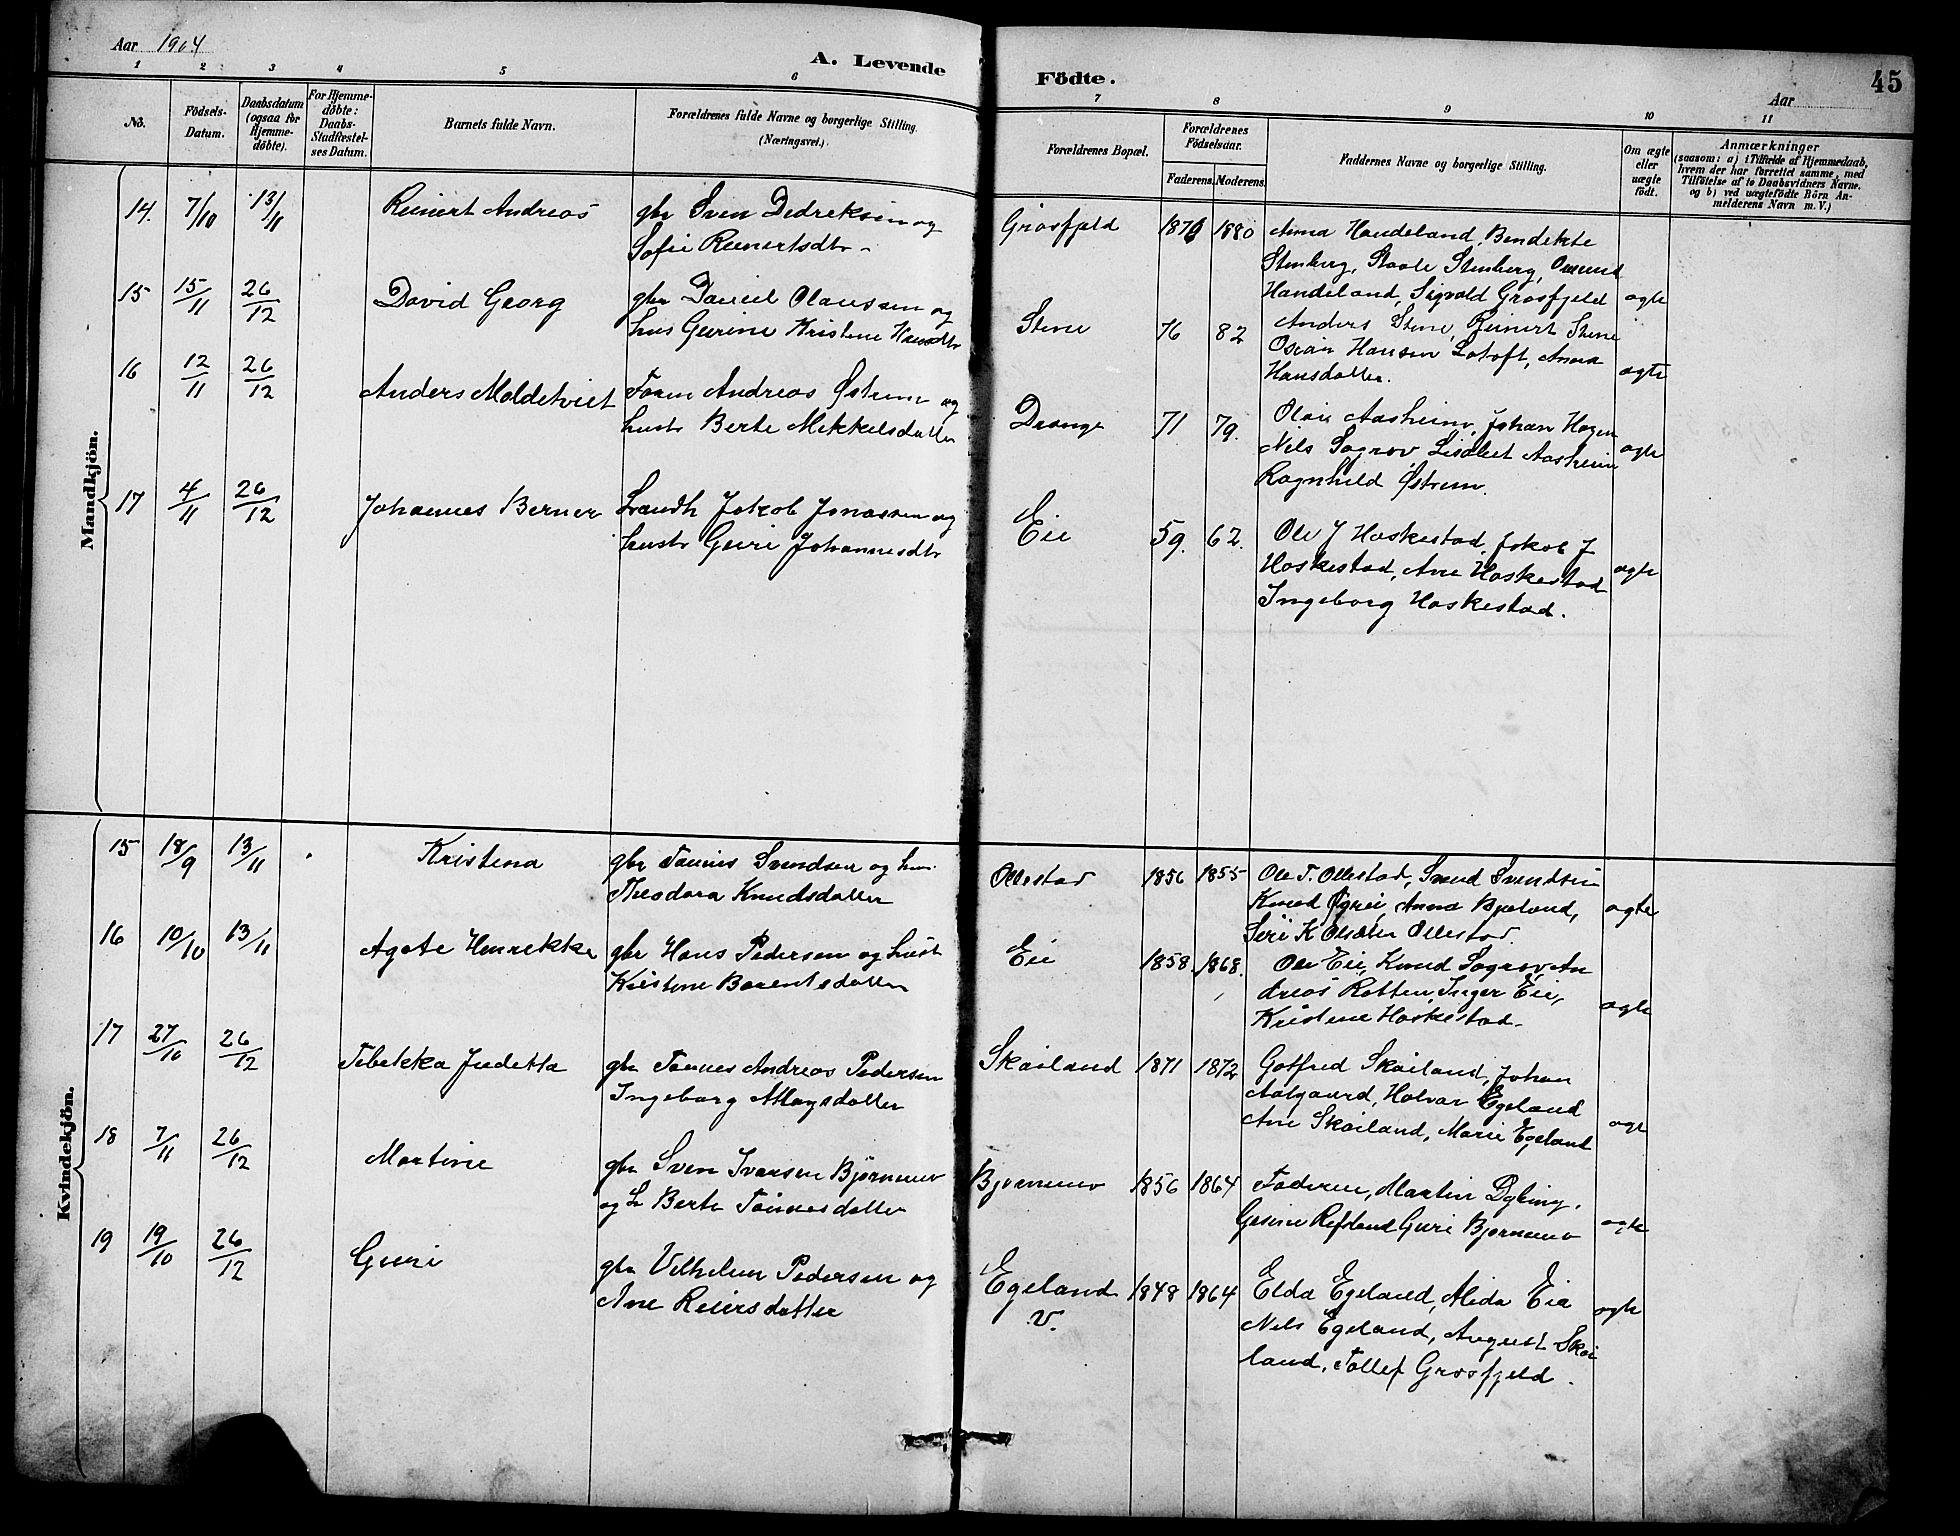 Aar 1904
A. Levende Födte.
45
Aar
1 2 3 4 5 6 7 8 9 10 11
No.
Födsels-
Datum.
Daabsdatum
(ogsaa for
Hjemme-
döbte).
For Hjemme-
döbte:
Daabs-
Stadfæstel-
ses Datum.
Barnets fulde Navn.
Forældrenes fulde Navne og borgerlige Stilling.
(Næringsvei.)
Forældrenes Bopæl.
Forældrenes
Födselsaar.
Faderens. Moderens.
Faddernes Navne og borgerlige Stilling.
Om ægte
eller
uægte
födt.
Anmærkninger
(saasom: a) i Tilfælde af Hjemmedaab,
hvem der har forrettet samme, med
Tilföielse af to Daabsvidners Navne,
og b) ved uægtefödte Börn An-
melderens Navn m. V.)
Mandkjön.
14. 7/10 13/11 Reinert Andreas
gbr Sven Dedreksen og
Sofie Reinertsdtr
Grosfjeld 1870 1880
Anna Handeland, Bendekte
Stenberg, Staale Stenberg, Omund
Handeland, Sigvald Grosfjeld ægte
15 15/11 26/12 David Georg
gbr Daniel Olaussen og
hus Gurine Kristine Hansdtr
Stene 76 82
Anders Stene, Reinert Stene
Oscar Hansen Lotoft, Anna
Hansdatter. ægte
16 12/11 26/12 Anders Moldekviet
Form Andreas Østrem og
hustr Berte Mikkelsdatter
Drange 71 79.
Olai Aasheim, Johan Hagen
Nils Sogrov Lisabet Aasheim
Ragnhild Østrem. ægte
17 4/11 26/12 Johannes Berner
Landh Jakob Jonassen og
hustr Guri Johannesdtr
Eie 59. 62.
Ole J Haskestad, Jakob J
Haskestad, Ane Haskestad
Ingeborg Haskestad. ægte
Kvindekjön.
15 18/9 13/11 Kristena
gbr Tønnes Svendsen og hu.
Theodora Knudsdatter
Ollestad 1856 1855
Ole T. Ollestad, Svend Svendsen
Knud Øgrei, Anna Bjeland,
Siri K Olsdtr Ollestad. ægte
16 10/10 13/11 Agate Henrekke
gbr Hans Pedersen og hust
Kristine Barentsdatter
Eie 1858. 1868.
Ole Eie, Knud Sogrov An
dreas Rotten, Inger Eie,
Kristine Haskestad. ægte
17 27/10 26/12 Tebekka Judetta
gbr Tønnes Andreas Pedersen
Ingeborg Magsdatter
Skailand 1871 1872
Gotfred Skailand, Johan
Aalgaard, Halvar Egeland
Ane Skailand, Marie Egeland ægte
18 7/11 26/12 Martine
gbr Sven Ivarsen Bjørnemo
og h Berte Tønnesdatter
Bjørnemo 1856 1864
Faderen, Martin Dybing,
Gesine Refsland Guri Bjørnemo ægte
19 19/10 26/12 Guri
gbr Vilhelm Pedersen og
Ane Reiersdatter
Egeland
V. 1848 1864
Elda Egeland, Alida Eie
Nils Egeland, August Skai
land, Tollef Grosfjeld. ægte